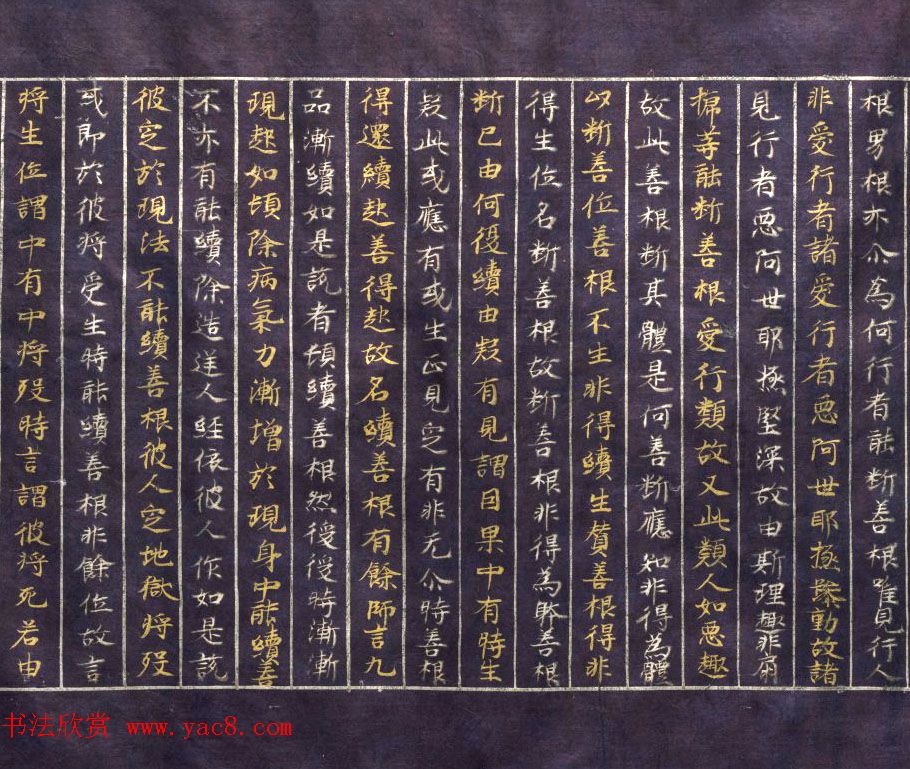 根男根亦尒為何行者能断善根唯見行人
非愛行者諸愛行者惡阿世耶極躁動故諸
見行者惡阿世耶極堅深故由斯理趣非扇
搋等能断善根愛行類故又此類人如惡趣
故此善根断其體是何善断應知非得為體
以断善位善根不生非得續生替善根得非
得生位名断善根故断善根非得為體善根
断已由何復續由疑有見謂因果中有時生
疑此或應有或生正見定有非无尒時善根
得還續起善得起故名續善根有餘師言九
品漸續如是説者頓續善根然後後時漸漸
現起如頓除病氣力漸增於現身中能續善
不亦有能續除造逆人經依彼人作如是説
彼定於現法不能續善根彼人定地獄將歿
或即於彼將受生時能續善根非餘位故言
將生位謂中有中將歿時言謂彼將死若由
书法欣赏 www.yac8.com